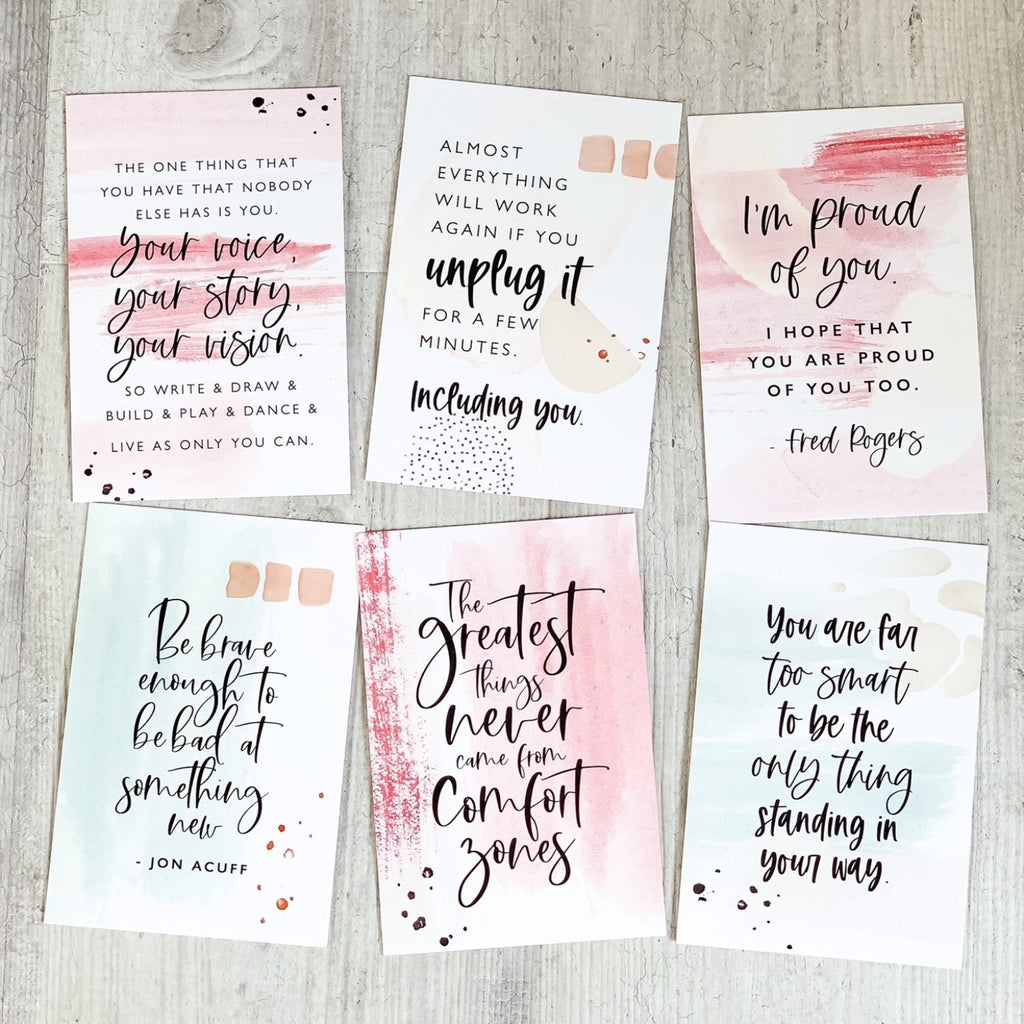 THE ONE THING THAT
YOU HAVE THAT NOBODY
ELSE HAS IS YOU.
your voice,
your story,
your vision.
SO WRITE & DRAW &
BUILD & PLAY & DANCE &
LIVE AS ONLY YOU CAN.
ALMOST
EVERYTHING
WILL WORK
AGAIN IF YOU
unplug it
FOR A FEW
MINUTES.
Including you.
I'm proud
of you.
I HOPE THAT
YOU ARE PROUD
OF YOU TOO.
- Fred Rogers
Be brave
enough to
be bad at
something
new
- JON ACUFF
The
greatest
things
never
came from
Comfort
zones
You are far
too smart
to be the
only thing
standing in
your way.